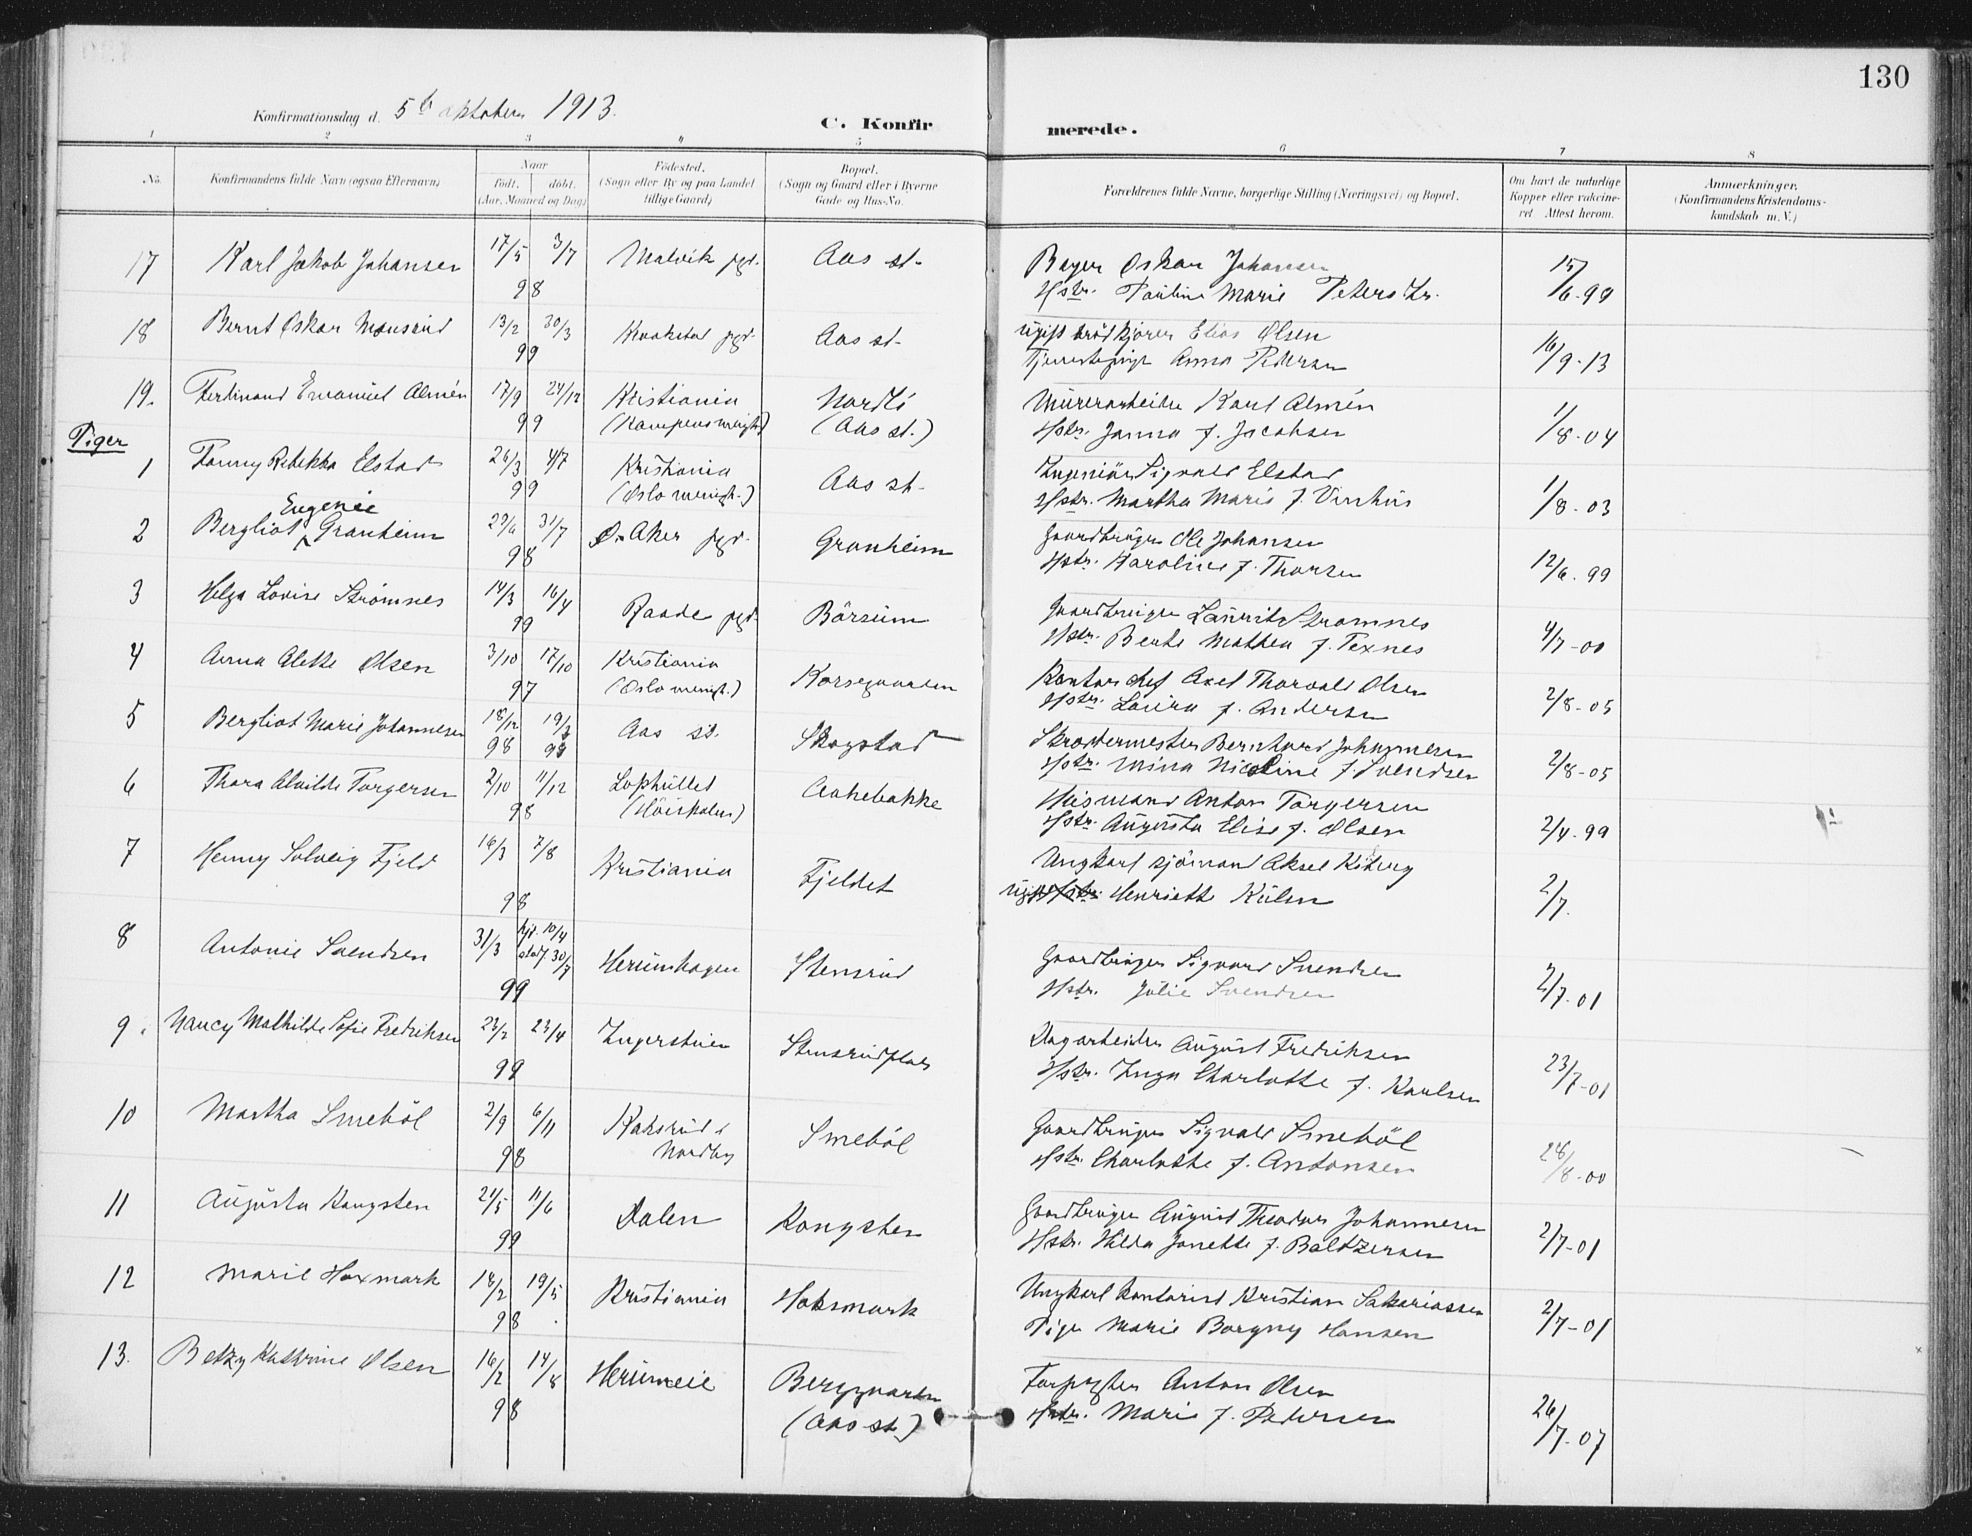 130
Konfirmationsdag d. 5te oktober 1913.
C. Konfirmerede.
1 2 3 4 5 6 7 8
No. Konfirmandens fulde Navn (ogsaa Efternavn) Naar født. døbt. (Aar, Maaned og Dag) Födested. (Sogn eller By og paa Landet tillige Gaard) Bopæl. (Sogn og Gaard eller i Byerne Gade og Hus-No. Forældrenes fulde Navne, borgerlige Stilling (Næringsvei) og Bopæl. Om havt de naturlige Kopper eller vakcineret. Attest herom. Anmærkninger. (Konfirmandens Kristendomskundskab m. V.)
17 Karl Jakob Johansen 17/5 3/7 98 Malvik pgd. Aas st. Bager Oskar Johansen
Hstr. Pauline Marie Petersdtr. 15/6-99
18 Bernt Oskar Mausrud 13/2 30/3 99 Kraakstad pgd. Aas st. ugift brødkjører Elias Olsen
Tjenestepige Anna Pedersen 16/9-13
19. Ferdinand Emanuel Almén 17/9 24/12 99 Kristiania (Kampens menigh.) Nordli (Aas st.) Murerarbeider Karl Almén
Hstr. Janna f. Jacobsen 1/8-04
Piger
1 Fanny Rebekka Elstad 26/3 4/7 99 Kristiania (Oslo menigh.) Aas st. Ingeniör Sigvald Elstad
Hstr. Martha Marie f. Vinhus 1/8-03
2 Bergliot Eugenie Granheim 29/6 31/7 98 Ø. Aker pgd. Granheim Gaardbruger Ole Johansen
Hstr. Karoline f. Thorsen 12/6-99
3 Helga Lovise Strømnes 14/3 16/4 99 Raade pgd. Börsum Gaardbruger Laurits Strømnes
Hstr. Beate Mathea f. Texnes 4/7-00
4 Anna Alette Olsen 3/10 17/10 97 Kristiania (Oslo menigh.) Korsegaarden Kontorchef Axel Thorvald Olsen
Hstr. Laura f. Andersen 2/8-05
5 Bergliot Marie Johannesen 18/12 98 19/3 99 Aas st. Skogstad Skrædermester Bernhard Johannesen
Hstr. Mina Nicoline f. Svendsen 2/8-05
6 Thora Alvilde Torgersen 2/10 11/12 98 Lophullet (Höiskolen) Askebakke Husmand Anton Torgersen
Hstr. Augusta Elise f. Olsen 2/4-99
7 Henny Solveig Fjeld 16/3 7/8 98 Kristiania Fjeldet Ungkarl sjömand Aksel Kiberg
ugift Hstr. Henriette Külen 2/7.
8 Antonie Svendsen 31/3 hjd. 10/4 stadf 30/7 99 Herumhagen Stensrud Gaardbruger Sigvard Svendsen
Hstr. Julie Svendsen 2/7-01
9. Nancy Mathilde Sofie Fredriksen 23/2 23/4 99 Ingerstuen Stensrudplads Dagarbeider August Fredriksen
Hstr. Inga Charlotte f. Karlsen 23/7-01
10 Martha Smeböl 2/9 6/11 98 Kaksrud i Nordby Smeböl Gaardbruger Sigvald Smeböl
Hstr. Charlotte f. Antonsen 28/8-00
11 Augusta Kongsten 21/5 11/6 99 Dalen Kongsten Gaardbruger August Theodor Johannesen
Hstr. Hilda Janette f. Baltzersen 2/7-01
12 Marie Haxmark 18/2 19/5 98. Kristiania Haksmark Ungkarl kontorist Kristian Sakariassen
Pige Marie Borgny Hansen 2/7-01
13. Betzy Kathrine Olsen 16/2 14/8 98 Herumeie Berggaarden (Aas st.) Forpagter Anton Olsen
Hstr. Marie f. Pedersen 26/7-07